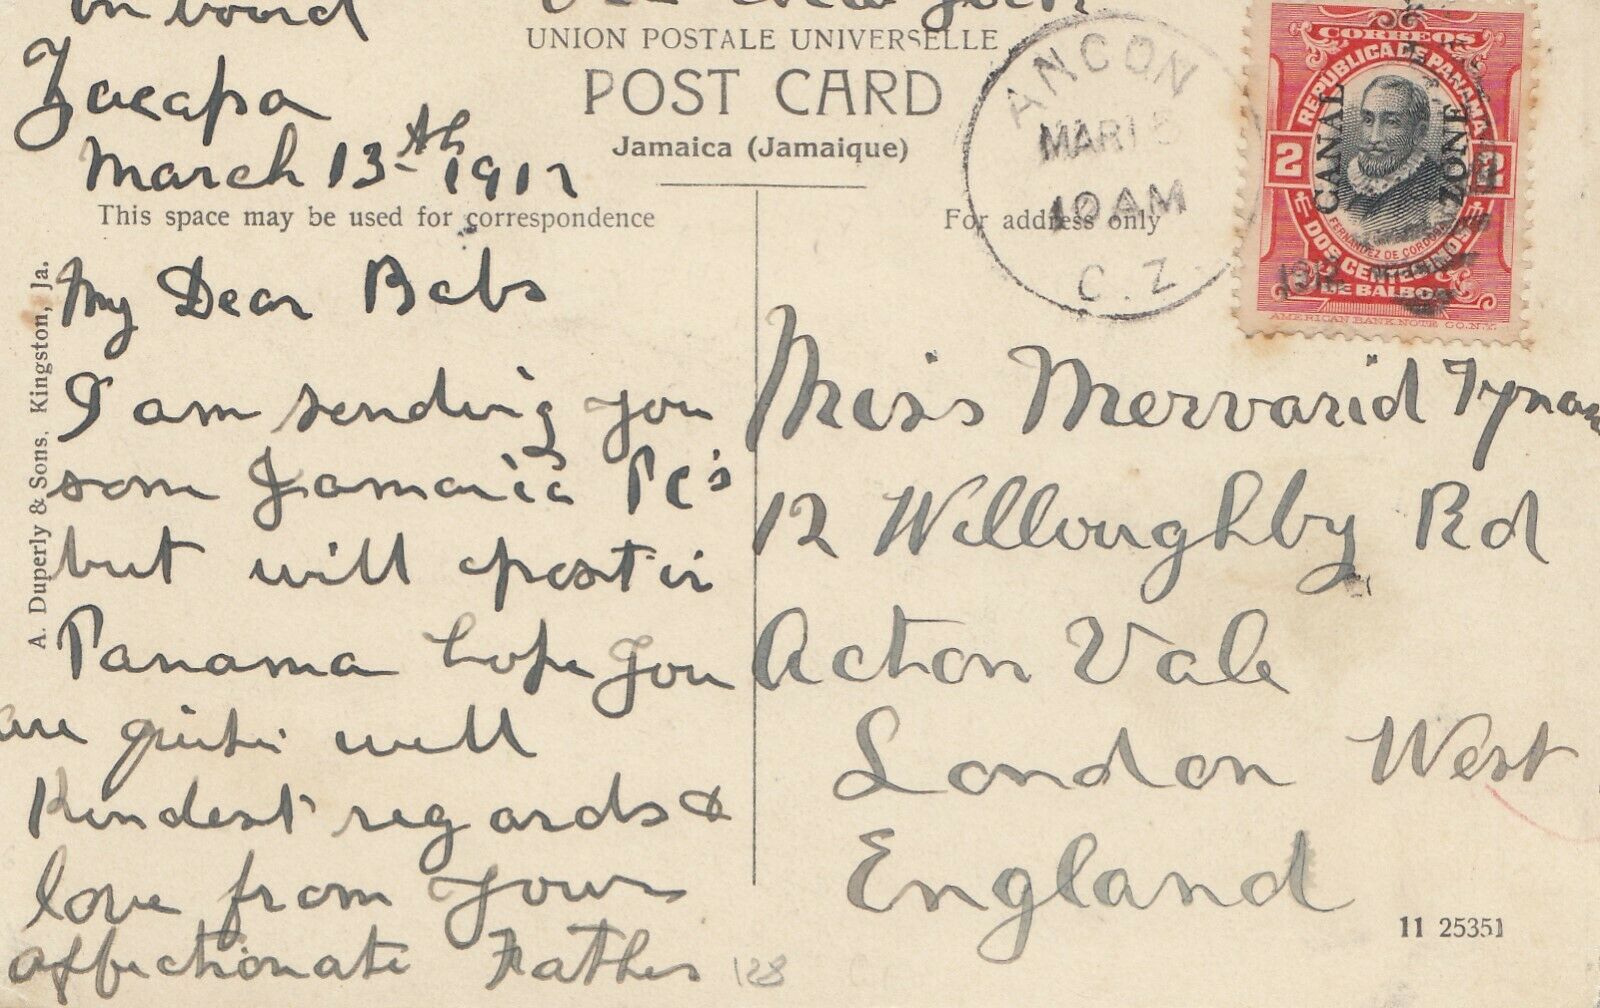 on board
Zacapa
March 13th 1912
Via New York
UNION POSTALE UNIVERSELLE
POST CARD
Jamaica (Jamaique)
This space may be used for correspondence
For address only
My Dear Babs
I am sending you
som Jamaica PC's
but will post in
Panama hope you
are quite well
Kindest regards &
love from your
affectionate Father
A. Duperly & Sons. Kingston, Ja.
ANCON
MAR 15
10 AM
1912
C. Z.
CORREOS
REPUBLICA DE PANAMA
CANAL ZONE
2 2
FERNANDEZ DE CORDOBA
DOS CENTESIMOS
DE BALBOA
AMERICAN BANK NOTE CO. N.Y.
Miss Mervarid Tynan
12 Willoughby Rd
Acton Vale
London West
England
11 25351
128